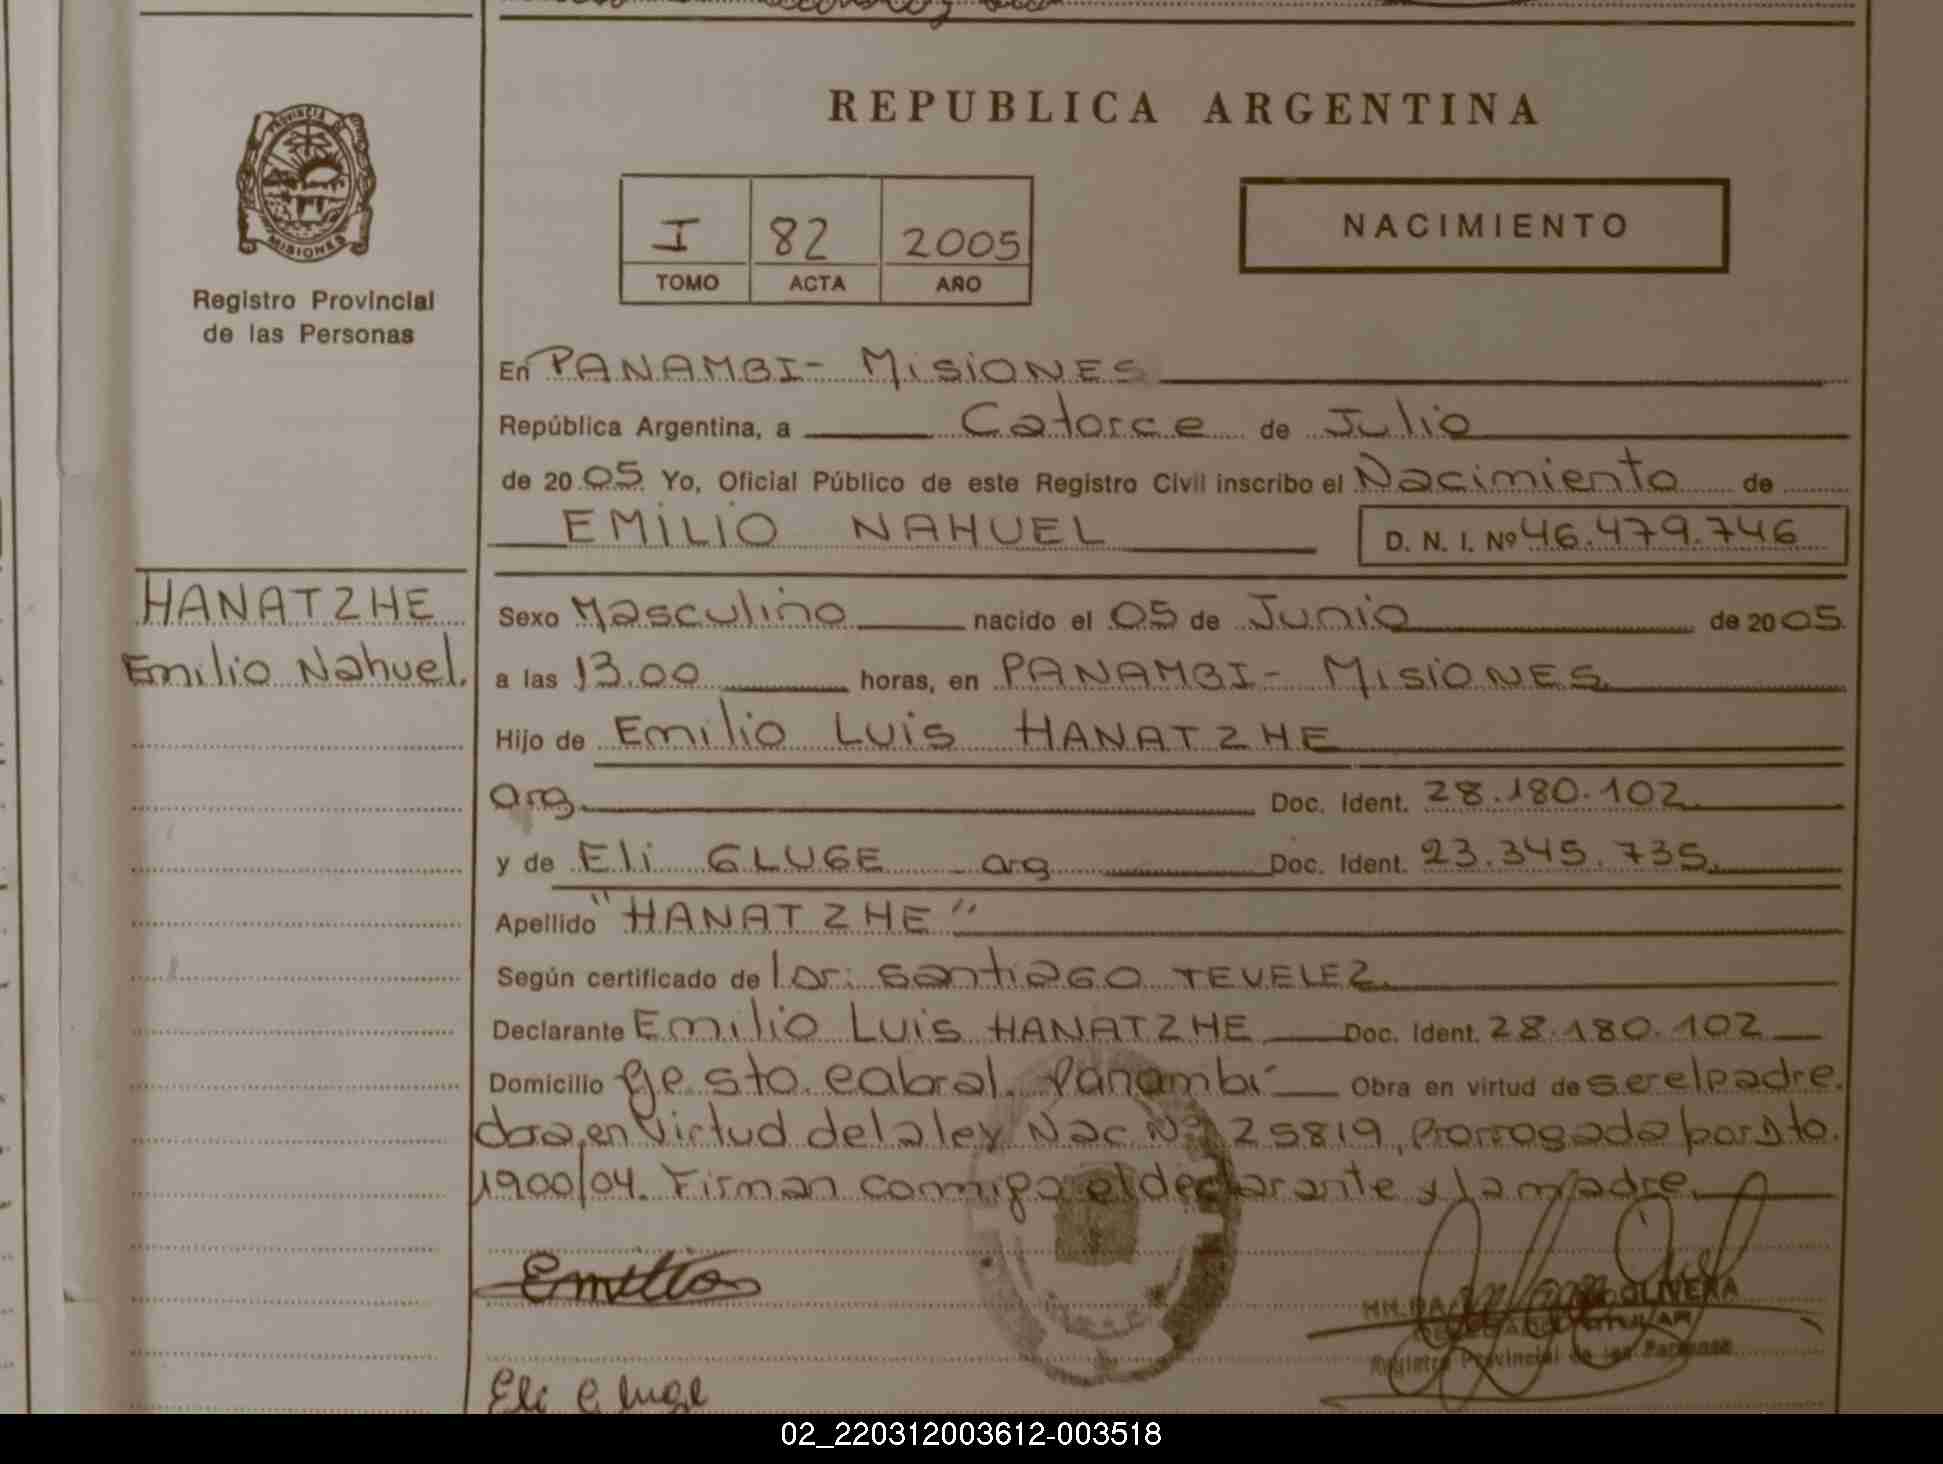 REPUBLICA ARGENTINA
PROVINCIA DE
MISIONES
Registro Provincial
de las Personas
I 82 2005
TOMO ACTA AÑO
NACIMIENTO
En PANAMBI- MISIONES
República Argentina, a Catorce de Julio
de 2005 Yo, Oficial Público de este Registro Civil inscribo el Nacimiento de
EMILIO NAHUEL D. N. I. Nº 46.479.746
HANATZHE
Emilio Nahuel.
Sexo Masculino nacido el 05 de Junio de 2005.
a las 13.00 horas, en PANAMBI- MISIONES.
Hijo de Emilio Luis HANATZHE
arg. Doc. Ident. 28.180.102.
y de Eli GLUGE arg Doc. Ident. 23.345.735.
Apellido "HANATZHE"
Según certificado de Santiago TEVELEZ.
Declarante Emilio Luis HANATZHE Doc. Ident. 28.180.102
Domicilio Pje. Sto. Cabral. Panambi Obra en virtud de ser el padre.
en virtud de la ley Nac Nº 25819, Prorrogada por Dto.
1900/04. Firman conmigo el declarante y la madre.
Emilio
OLIVERA
Registro Provincial de las Personas
Eli Gluge
02_220312003612-003518